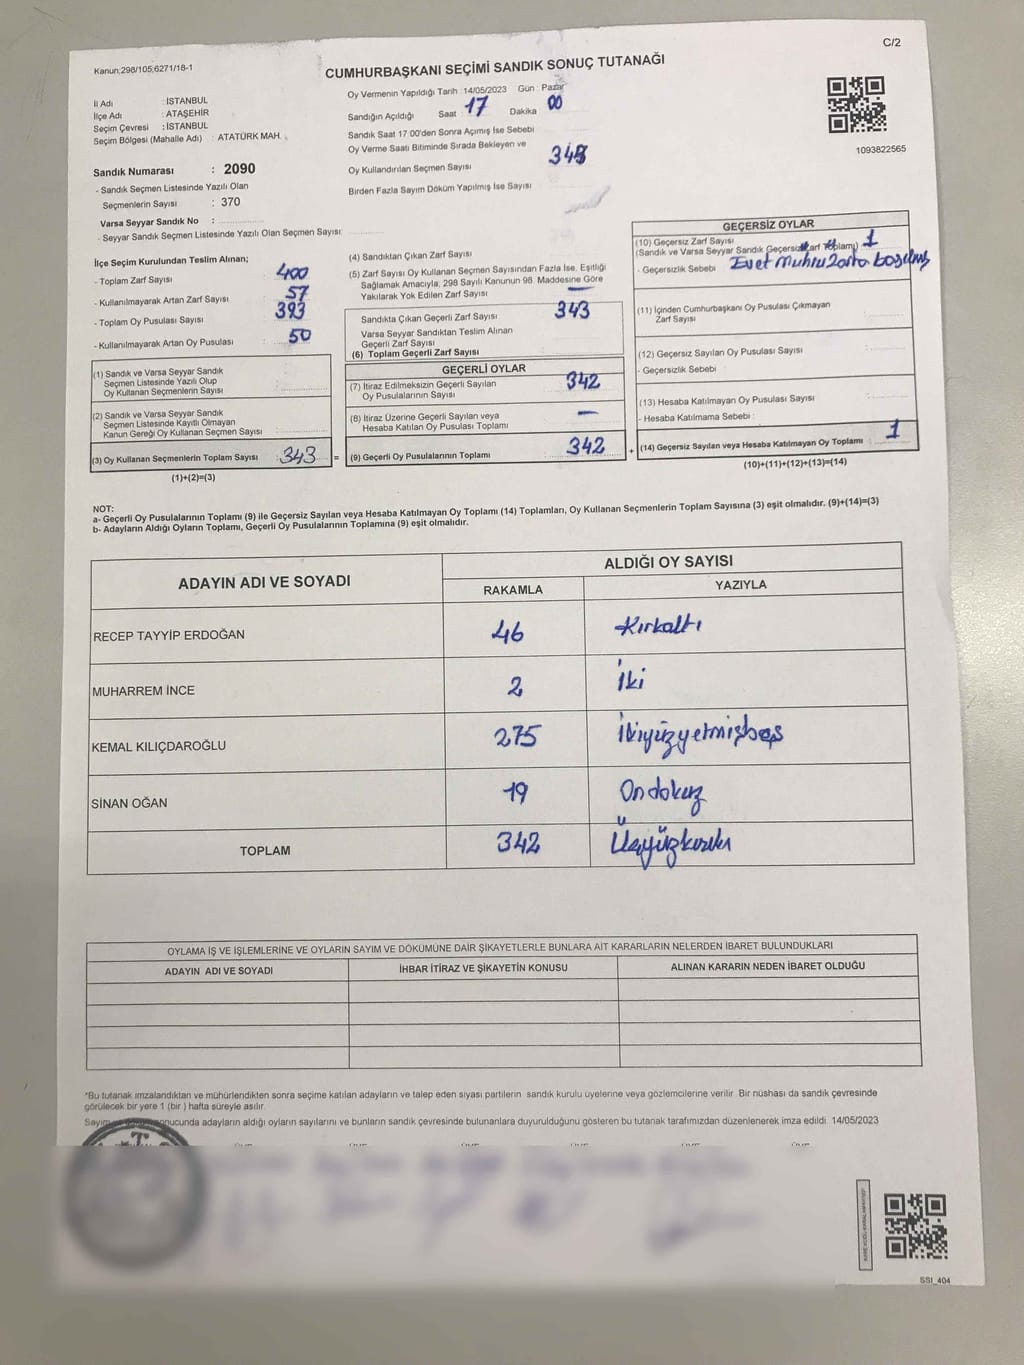 C/2
Kanun;298/105,6271/18-1
CUMHURBAŞKANI SEÇİMİ SANDIK SONUÇ TUTANAĞI
İl Adı : İSTANBUL
İlçe Adı : ATAŞEHİR
Seçim Çevresi : İSTANBUL
Seçim Bölgesi (Mahalle Adı) : ATATÜRK MAH.
Oy Vermenin Yapıldığı Tarih :14/05/2023 Gün : Pazar
Sandığın Açıldığı Saat : 17 Dakika : 00
Sandık Saat 17 00'den Sonra Açımış İse Sebebi
Oy Verme Saati Bitiminde Sırada Bekleyen ve
Oy Kullandırılan Seçmen Sayısı
Birden Fazla Sayım Döküm Yapılmış İse Sayısı
1093822565
Sandık Numarası : 2090
- Sandık Seçmen Listesinde Yazılı Olan
Seçmenlerin Sayısı : 370
Varsa Seyyar Sandık No :
- Seyyar Sandık Seçmen Listesinde Yazılı Olan Seçmen Sayısı:
İlçe Seçim Kurulundan Teslim Alınan;
- Toplam Zarf Sayısı : 400
- Kullanılmayarak Artan Zarf Sayısı : 57
- Toplam Oy Pusulası Sayısı : 393
- Kullanılmayarak Artan Oy Pusulası : 50
(1) Sandık ve Varsa Seyyar Sandık
Seçmen Listesinde Yazılı Olup
Oy Kullanan Seçmenlerin Sayısı :
(2) Sandık ve Varsa Seyyar Sandık
Seçmen Listesinde Kayıtlı Olmayan
Kanun Gereği Oy Kullanan Seçmen Sayısı :
(3) Oy Kullanan Seçmenlerin Toplam Sayısı : 343 =
(1)+(2)=(3)
(4) Sandıktan Çıkan Zarf Sayısı :
(5) Zarf Sayısı Oy Kullanan Seçmen Sayısından Fazla İse, Eşitliği
Sağlamak Amacıyla, 298 Sayılı Kanunun 98. Maddesine Göre
Yakılarak Yok Edilen Zarf Sayısı : —
Sandıkta Çıkan Geçerli Zarf Sayısı : 343
Varsa Seyyar Sandıktan Teslim Alınan
Geçerli Zarf Sayısı
(6) Toplam Geçerli Zarf Sayısı
GEÇERLİ OYLAR
(7) İtiraz Edilmeksizin Geçerli Sayılan
Oy Pusulalarının Sayısı : 342
(8) İtiraz Üzerine Geçerli Sayılan veya
Hesaba Katılan Oy Pusulası Toplamı : —
(9) Geçerli Oy Pusulalarının Toplamı : 342 +
GEÇERSİZ OYLAR
(10) Geçersiz Zarf Sayısı : 1
(Sandık ve Varsa Seyyar Sandık Geçersiz Zarf Toplamı)
- Geçersizlik Sebebi : Evet Mührü Zarfa basılmış
(11) İçinden Cumhurbaşkanı Oy Pusulası Çıkmayan
Zarf Sayısı :
(12) Geçersiz Sayılan Oy Pusulası Sayısı :
- Geçersizlik Sebebi :
(13) Hesaba Katılmayan Oy Pusulası Sayısı :
- Hesaba Katılmama Sebebi :
(14) Geçersiz Sayılan veya Hesaba Katılmayan Oy Toplamı : 1
(10)+(11)+(12)+(13)=(14)
NOT:
a- Geçerli Oy Pusulalarının Toplamı (9) ile Geçersiz Sayılan veya Hesaba Katılmayan Oy Toplamı (14) Toplamları, Oy Kullanan Seçmenlerin Toplam Sayısına (3) eşit olmalıdır. (9)+(14)=(3)
b- Adayların Aldığı Oyların Toplamı, Geçerli Oy Pusulalarının Toplamına (9) eşit olmalıdır.
ADAYIN ADI VE SOYADI
ALDIĞI OY SAYISI
RAKAMLA YAZIYLA
RECEP TAYYİP ERDOĞAN 46 Kırkaltı
MUHARREM İNCE 2 İki
KEMAL KILIÇDAROĞLU 275 İkiyüzyetmişbeş
SİNAN OĞAN 19 Ondokuz
TOPLAM 342 Üçyüzkırkiki
OYLAMA İŞ VE İŞLEMLERİNE VE OYLARIN SAYIM VE DÖKÜMÜNE DAİR ŞİKAYETLERLE BUNLARA AİT KARARLARIN NELERDEN İBARET BULUNDUKLARI
ADAYIN ADI VE SOYADI İHBAR İTİRAZ VE ŞİKAYETİN KONUSU ALINAN KARARIN NEDEN İBARET OLDUĞU
*Bu tutanak imzalandıktan ve mühürlendikten sonra seçime katılan adayların ve talep eden siyasi partilerin sandık kurulu üyelerine veya gözlemcilerine verilir. Bir nüshası da sandık çevresinde
görülecek bir yere 1 (bir ) hafta süreyle asılır.
sonucunda adayların aldığı oyların sayılarını ve bunların sandık çevresinde bulunanlara duyurulduğunu gösteren bu tutanak tarafımızdan düzenlenerek imza edildi 14/05/2023
SSI_404